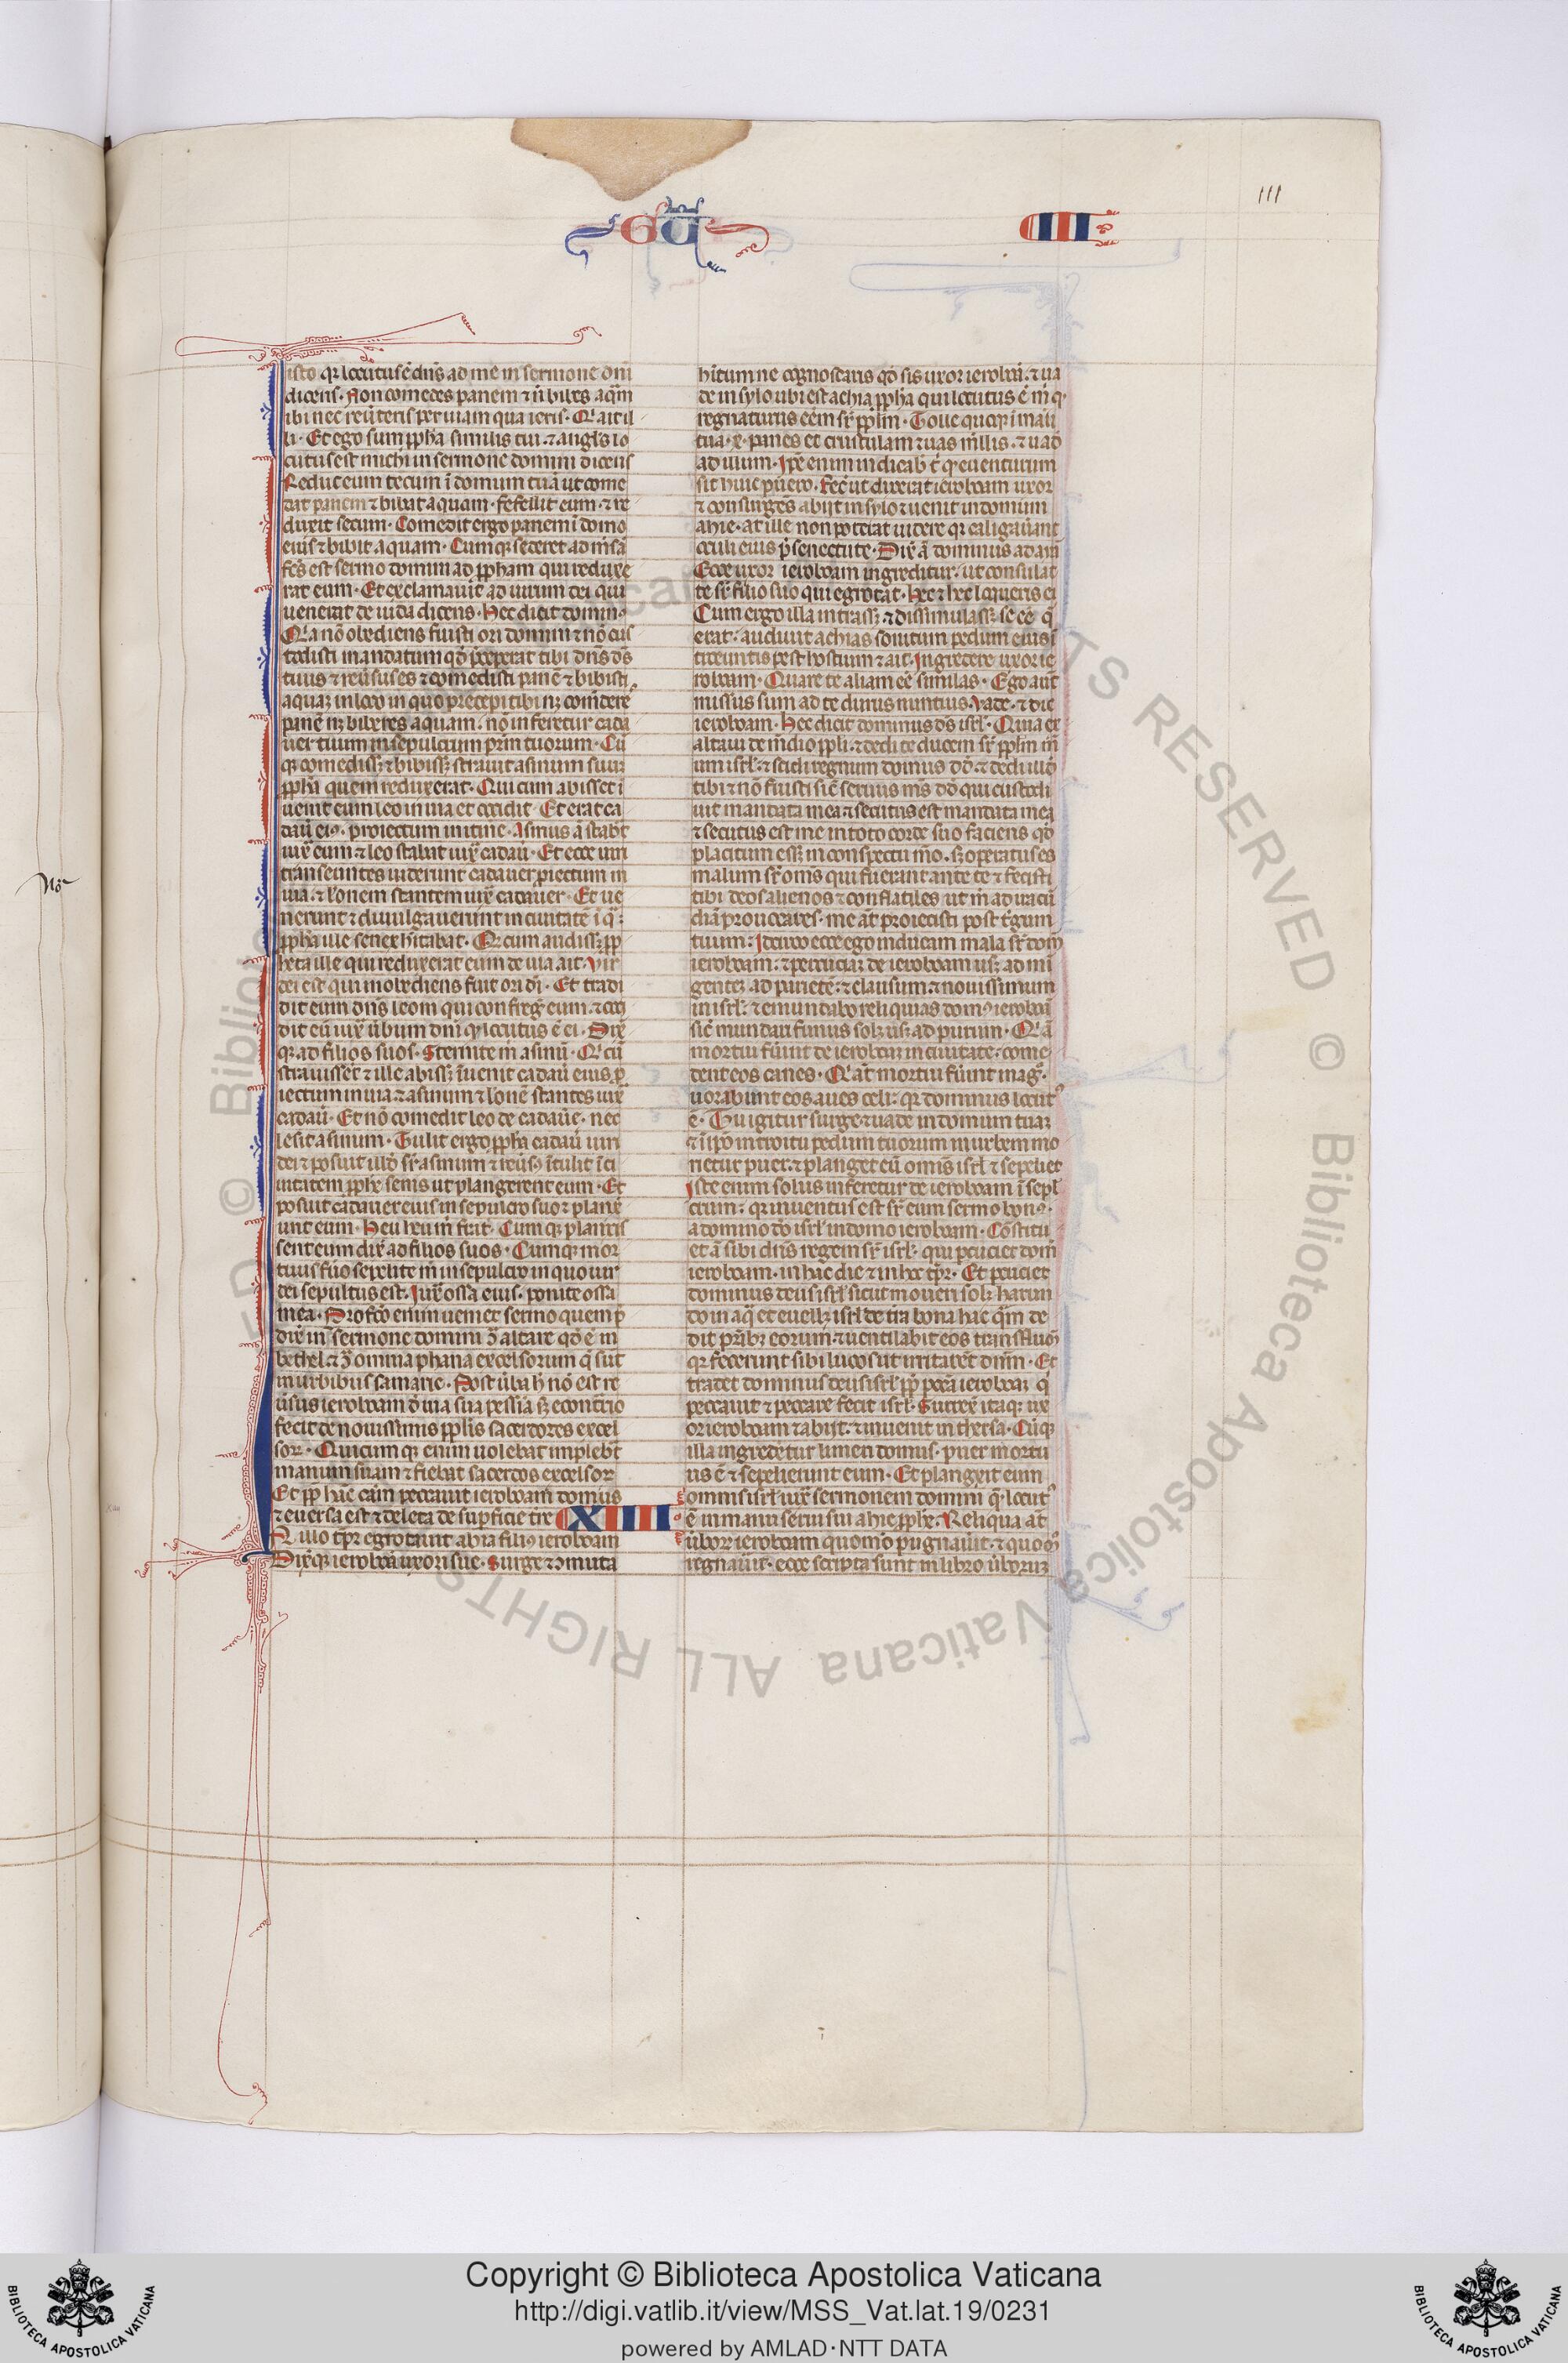 111
GŪ
IIII
isto qr̄ locutus ē dn̄s ad me in sermone dn̄i
dicens· Non comedes panem ⁊ ñ bibes aq̄m
ibi nec reũteris per uiam qua ieris· Q' ait il
li· Et ego sum ꝓpha similis tui ⁊ angl's lo
cutus est michi in sermone domini dicens
Reduc eum tecum ī domum tuā ut come
dat panem ⁊ bibat aquam· fefellit eum· ⁊ re
duxit secum· Comedit ergo panem ī domo
eius ⁊ bibit aquam· Cumqꝫ sederet ad m̄sā
fc̄s est sermo domini ad ꝓpham qui reduxe
rat eum· Et exclamauit ad uirum dei qui
uenerat de iuda dicens· Hec dicit domin'·
Q'a nō obediens fuisti ori domini ⁊ nō cus
todisti mandatum qd̄ p̄ceperat tibi dn̄s d̄s
tuus ⁊ reũsus es ⁊ comedisti panē ⁊ bibisti
aquaꝫ in loco in quo precepi tibi nꝫ com̄deres
panē nꝫ biberes aquam· nō inferetur cada
uer tuum in sepulcrum patrū tuorum· Cū
qꝫ comedissꝫ ⁊ bibissꝫ strauit asinum suuꝫ
ꝓphā quem reduxerat· Qui cum abisset ī
uenit eum leo in uia et occidit· Et erat ca
dau̅ ei9· proiectum in itine· Asinus ā stabt
iux̄ eum ⁊ leo stabat iux̄ cadau̅· Et ecce uiri
transeuntes uiderunt cadauer ꝓiectum in
uia· ⁊ leonem stantem iux̄ cadauer· Et ue
nerunt ⁊ diuulgauerunt in ciuitate ī q̄
ꝓpha ille senex hītabat· Qd̄ cum audissꝫ ꝓp
heta ille qui reduxerat eum de uia ait· Vir
dei est qui inobediens fuit ori dī· Et tradi
dit eum dn̄s leoni qui confreḡ eum ⁊ occi
dit eū iux̄ ũbum dn̄i qd̄ locutus ē ei· Dix̄
qꝫ ad filios suos· Sternite m̄ asinū· Q' cū
strauisset ⁊ ille abissꝫ īuenit cadau̅ eius ꝓ
iectum in uia ⁊ asinum ⁊ leonē stantes iux̄
cadau̅· Et nō comedit leo de cadaũe· nec
lesit asinum· Tulit ergo ꝓpha cadau̅ uiri
dei ⁊ posuit illd̄ sr̄ asinum ⁊ reũs9 ītulit ī ci
uitatem ꝓphe senis ut plangerent eum· Et
posuit cadauer eius in sepulcro suo ⁊ planx̄
unt eum· Heu heu m̄ frat̄· Cumqꝫ planxis
sent eum dix̄ ad filios suos· Cumqꝫ mor
tuus fuo sepelite m̄ in sepulcro in quo uir
dei sepultus est· Iux̄ ossa eius· ponite ossa
mea· Profc̄o enim ueniet sermo quem p̄
dix̄ in sermone domini ↄ̄ altare qd̄ ē in
bethel ⁊ ↄ̄ omnia phana excelsorum q̄ sūt
in urbibus samarie· Post ũba h̄ nō est re
ũsus ieroboam d̄ uia sua pessīa sꝫ econtrio
fecit de nouissimis ppl̄is sacerdotes excel
soꝝ· Quicumqꝫ enim uolebat implebt
manum suam ⁊ fiebat sacerdos excelsoꝝ
Et ꝓp hāc cām peccauit ieroboam domus
⁊ euersa est ⁊ deleta de supficie tr̄e XIIII
N illo tp̄r egrotauit abia fili9 ieroboam
Dix̄qꝫ ieroboā uxori sue· Surge ⁊ ↄmuta
hītum ne cognoscaris qd̄ sis uxor ieroboā· ⁊ ua
de in sylo ubi est achia ꝓpha qui locutus ē m̄ q·
regnaturus eēm sr̄ ppl̄m· Tolle quoqꝫ ī manu
tua·x· panes et crustulam ⁊ uas mellis· ⁊ uad̄
ad illum· Ip̄e enim indicab̄ t̄ qd̄ euenturum
sit huic puero· Fec̄ ut dixerat ieroboam uxor
⁊ consurgens abijt in sylo ⁊ uenit in domum
ahie· at ille non poterat uidere qꝫ caligauānt
oculi eius p̄ senectute· Dix̄ ā dominus ad aīam
Ecce uxor ieroboam ingreditur· ut consulat
te sr̄ filio suo qui egrotat· Hec ⁊ hec loqueris ei
Cum ergo illa intrassꝫ· ⁊ dissimulassꝫ se eē q̄
erat· audiuit achias sonitum pedum eius ī
troeuntis per hostium ⁊ ait· Ingredere uxor ie
roboam· Quare te aliam eē similas· Ego aut̄
missus sum ad te durus nuntius· Vade· ⁊ dic
ieroboam· Hec dicit dominus d̄s isrl̄· Quia ex
altaui te m̄dio ppl̄i· ⁊ dedi te ducem sr̄ ppl̄m m̄
um isrl̄· ⁊ scidi regnum domus dd̄· ⁊ dedi illd̄
tibi ⁊ nō fuisti sic̄ seruus m̄s dd̄ qui custodi
uit mandata mea ⁊ secutus est mandata mea
⁊ secutus est me in toto corde suo faciens qd̄
placitum essꝫ in conspectu m̄o· sꝫ operatus es
malum sr̄ om̄s qui fuerunt ante te ⁊ fecisti
tibi deos alienos ⁊ conflatiles ut m̄ ad iracū
diā prouocares· me āt proiecisti post t̄gum
tuum· Idcirco ecce ego inducam mala sr̄ dom̄
ieroboam· ⁊ percutiaꝫ de ieroboam usꝫ ad mī
genteꝫ ad parietē· ⁊ clausum ⁊ nouissimum
in isrl̄· ⁊ emundabo reliquias dom9 ieroboā
sic̄ mundari fimus solꝫ usꝫ ad purum· Q' ā
mortui fũint de ieroboaꝫ in ciuitate· come
dent eos canes· Q' āt mortui fũint in agͦ·
uorabunt eos aues celi· qꝫ dominus locut9
ē· Tu igitur surge ⁊ uade in domum tuaꝫ
⁊ ī ip̄o introitu pedum tuorum in urbem mo
rietur puer· ⁊ planget eū omīs isrl̄ ⁊ sepeliet
Iste enim solus inferetur de ieroboam ī sepl̄
crum· qꝫ inuentus est sr̄ eum sermo bon9·
a domino dō isrl̄ in domo ieroboam· Cōstitu
et ā sibi dn̄s regem sr̄ isrl̄· qui pcuciet dom̄
ieroboam· in hac die ⁊ in hoc tp̄r· Et pcuciet
dominus deus isrl̄ sicut moueri solꝫ harun
do in aq̄ et euellꝫ isrl̄ de tr̄a bona hac q̄m de
dit pr̄ibꝫ eorum ⁊ uentilabit eos trans fluui
qꝫ fecerunt sibi lucos ut irritarēt dn̄m· Et
tradet dominus deus isrl̄ ꝓp pccā ieroboaꝫ q'
peccauit ⁊ peccare fecit isrl̄· Surrex̄ itaqꝫ ux
or ieroboam ⁊ abijt· ⁊ inuenit in thersa· Cūqꝫ
illa ingrederetur limen domus· puer mortu
us ē ⁊ sepelierunt eum· Et planxit eum
omnis isrl̄ iux̄ sermonem domini q̄ locut9
ē in manu serui sui ahie ꝓphe· Reliqua āt
ũboꝝ ieroboam quom̄o pugnauit· ⁊ quom̄o
regnauit· ecce scripta sunt in libro ũboruꝫ
Copyright © Biblioteca Apostolica Vaticana
http://digi.vatlib.it/view/MSS_Vat.lat.19/0231
powered by AMLAD·NTT DATA
BIBLIOTECA APOSTOLICA VATICANA
BIBLIOTECA APOSTOLICA VATICANA